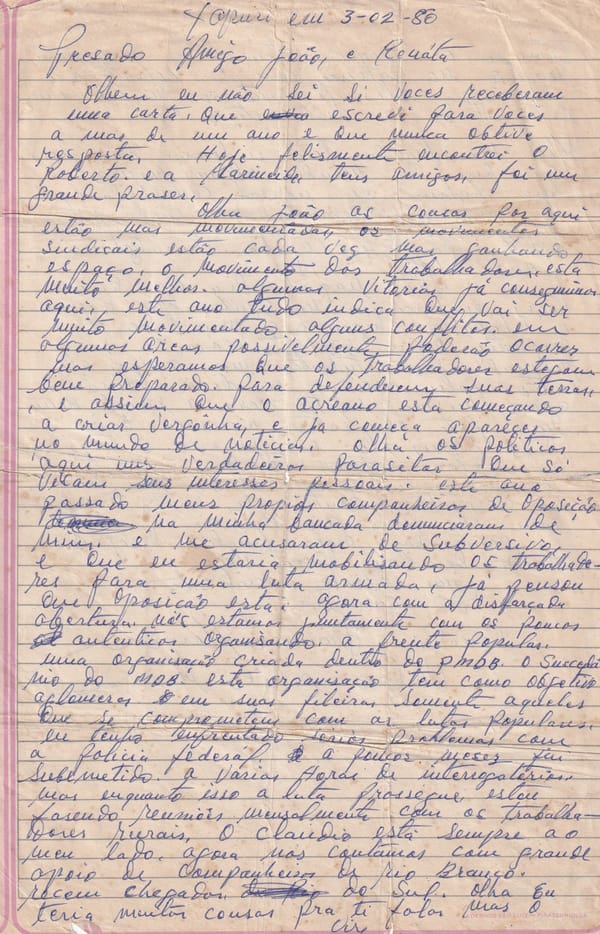 Xapuri em 3-02-80
Presado Amigo João, e Renáta
Olhem eu não sei si voces receberam
uma carta, que escrevi para voces
a mas de um ano e que nunca obtive
resposta, Hoje felismente encontrei o
Roberto. e a Marineide, teus amigos, foi um
grande praser.
Olha João as cousas por aqui
estão mas movimentadas, os movimentos
sindicais estão cada veg mas ganhando
espaço, o movimento dos trabalhadores, esta
muito melhor. algumas vitorias já conseguimos
aqui, este ano tudo indica que vai ser
muito movimentado alguns conflitos. em
algumas áreas possivelmente poderão ocorrer
mas esperamos que os trabalhadores estejam
bem preparado. para defenderem suas terras,
e assim que o acreano esta começando
a criar vergonha, e já começa aparecer
no mundo de notícias. olha os politicos
aqui uns verdadeiros Parasitas que só
vesam seus interesses pessoais. este ano
passado meus propios companheiros de oposição
na minha bancada denunciaram de
mim, e me acusaram de subversivo
e que eu estaria mobilisando os trabalhado-
res para uma luta armada, já pensou
que oposição esta. agora com a disfarçada
abertura, nós estamos juntamente com os poucos
autenticos organisando. a frente popular.
uma organisação criada dentro do PMDB. o sucedâ
nio do MDB. esta organisação tem como objetivo
aglomerar em suas fileiras somente aqueles
que se comprometem com as lutas populares.
eu tenho enfrentado serios problemas com
a policia federal a poucos meses fui
submetido. a varias Horas de interrogatórios.
mas enquanto isso a luta prossegue, estou
fasendo reuniões mensalmente com os trabalha-
dores rurais, o Claudio está sempre ao
meu lado, agora nós contamos com grande
apoio de companheiros do rio Branco.
recem chegados do Sul. olha Eu
teria muitas cousas pra ti falar mas o